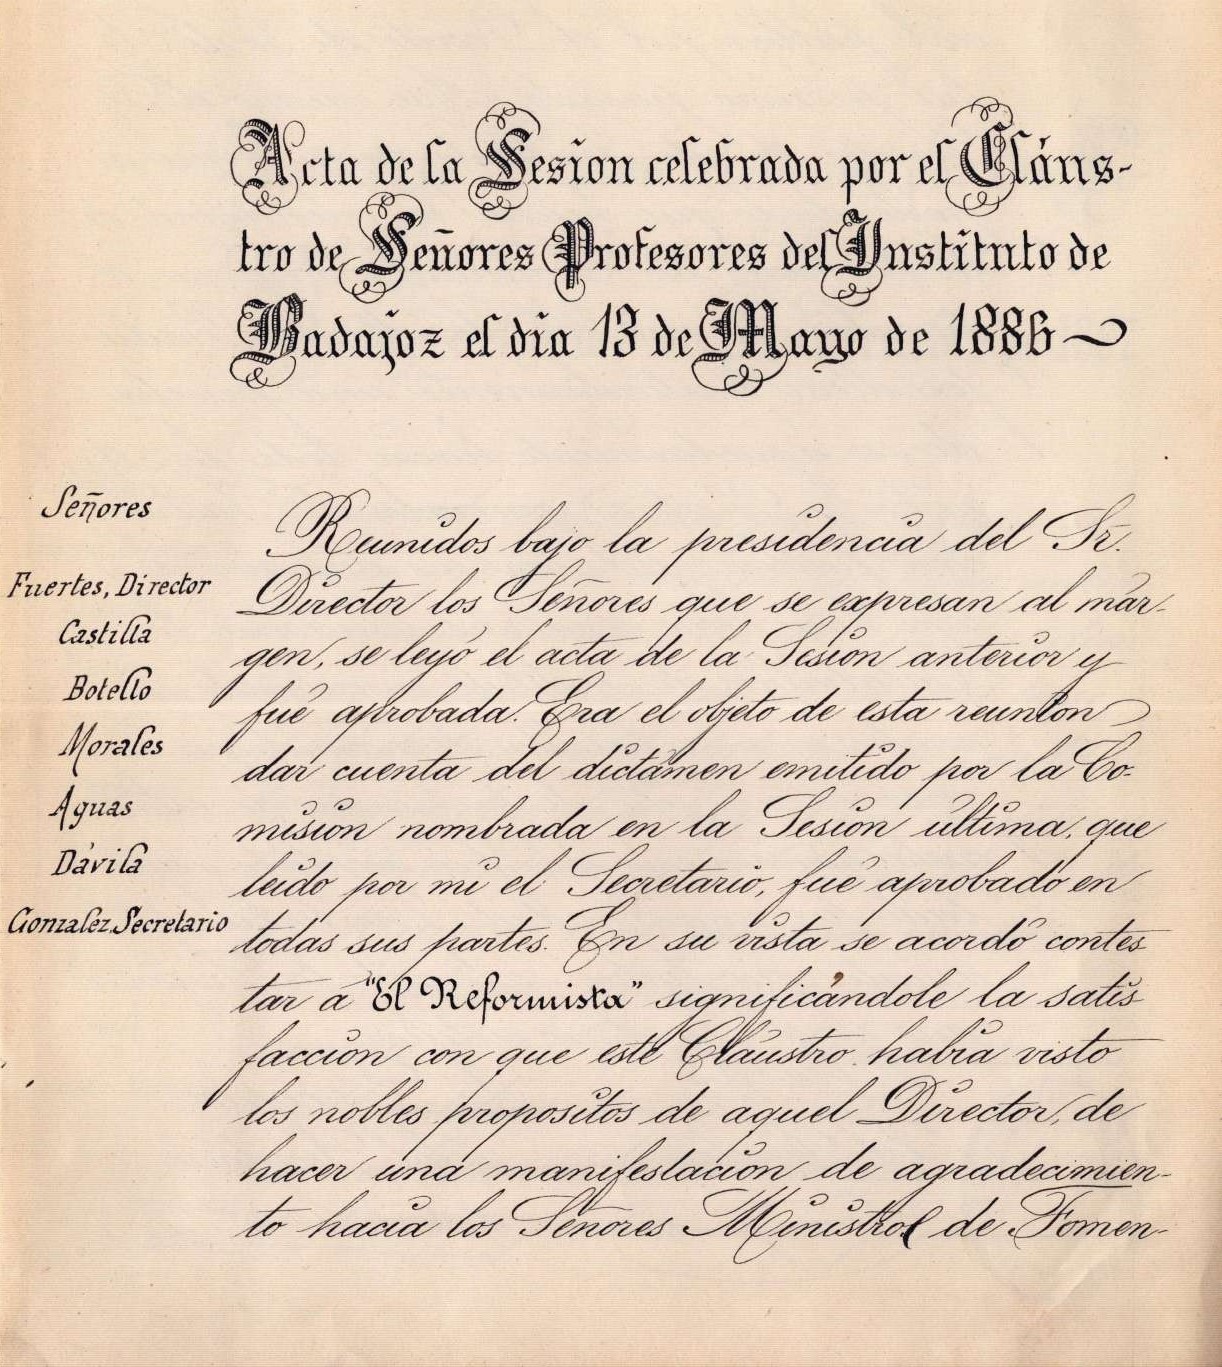 Acta de la Sesion celebrada por el Cláus-
tro de Señores Profesores del Instituto de
Badajoz el dia 13 de Mayo de 1886
Señores
Fuertes, Director
Castilla
Botello
Morales
Aguas
Dávila
Gonzalez, Secretario
Reunidos bajo la presidencia del Sr.
Director los Señores que se expresan al már-
gen, se leyó el acta de la Sesion anterior y
fué aprobada. Era el objeto de esta reunion
dar cuenta del dictámen emitido por la Co-
mision nombrada en la Sesion última, que
leido por mi el Secretario, fué aprobado en
todas sus partes. En su vista se acordó contes
tar á "El Reformista" significándole la satis
faccion con que este Cláustro habia visto
los nobles propositos de aquel Director, de
hacer una manifestacion de agradecimien-
to hacia los Señores Ministros de Fomen-